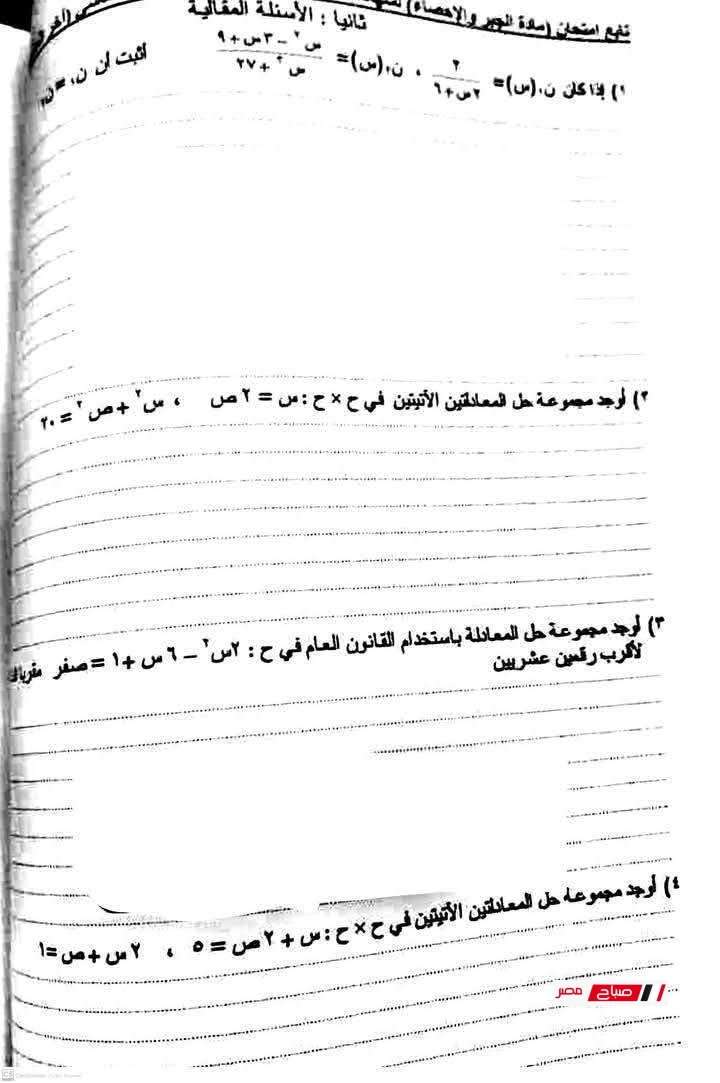 تابع امتحان (مادة الجبر والإحصاء)
ثانيا : الأسئلة المقالية
١) إذا كان ن₁(س) = ٢ / (٢س + ٦) ، ن₂(س) = (س٢ – ٣س + ٩) / (س٣ + ٢٧) أثبت أن ن₁ = ن₂
٢) أوجد مجموعة حل المعادلتين الآتيتين في ح × ح : س = ٢ ص ، س٢ + ص٢ = ٢٠
٣) أوجد مجموعة حل المعادلة باستخدام القانون العام في ح : ٢س٢ – ٦ س + ١ = صفر مقربا
لأقرب رقمين عشريين
٤) أوجد مجموعة حل المعادلتين الآتيتين في ح × ح : س + ٢ ص = ٥ ، ٢ س + ص = ١
صباح مصر